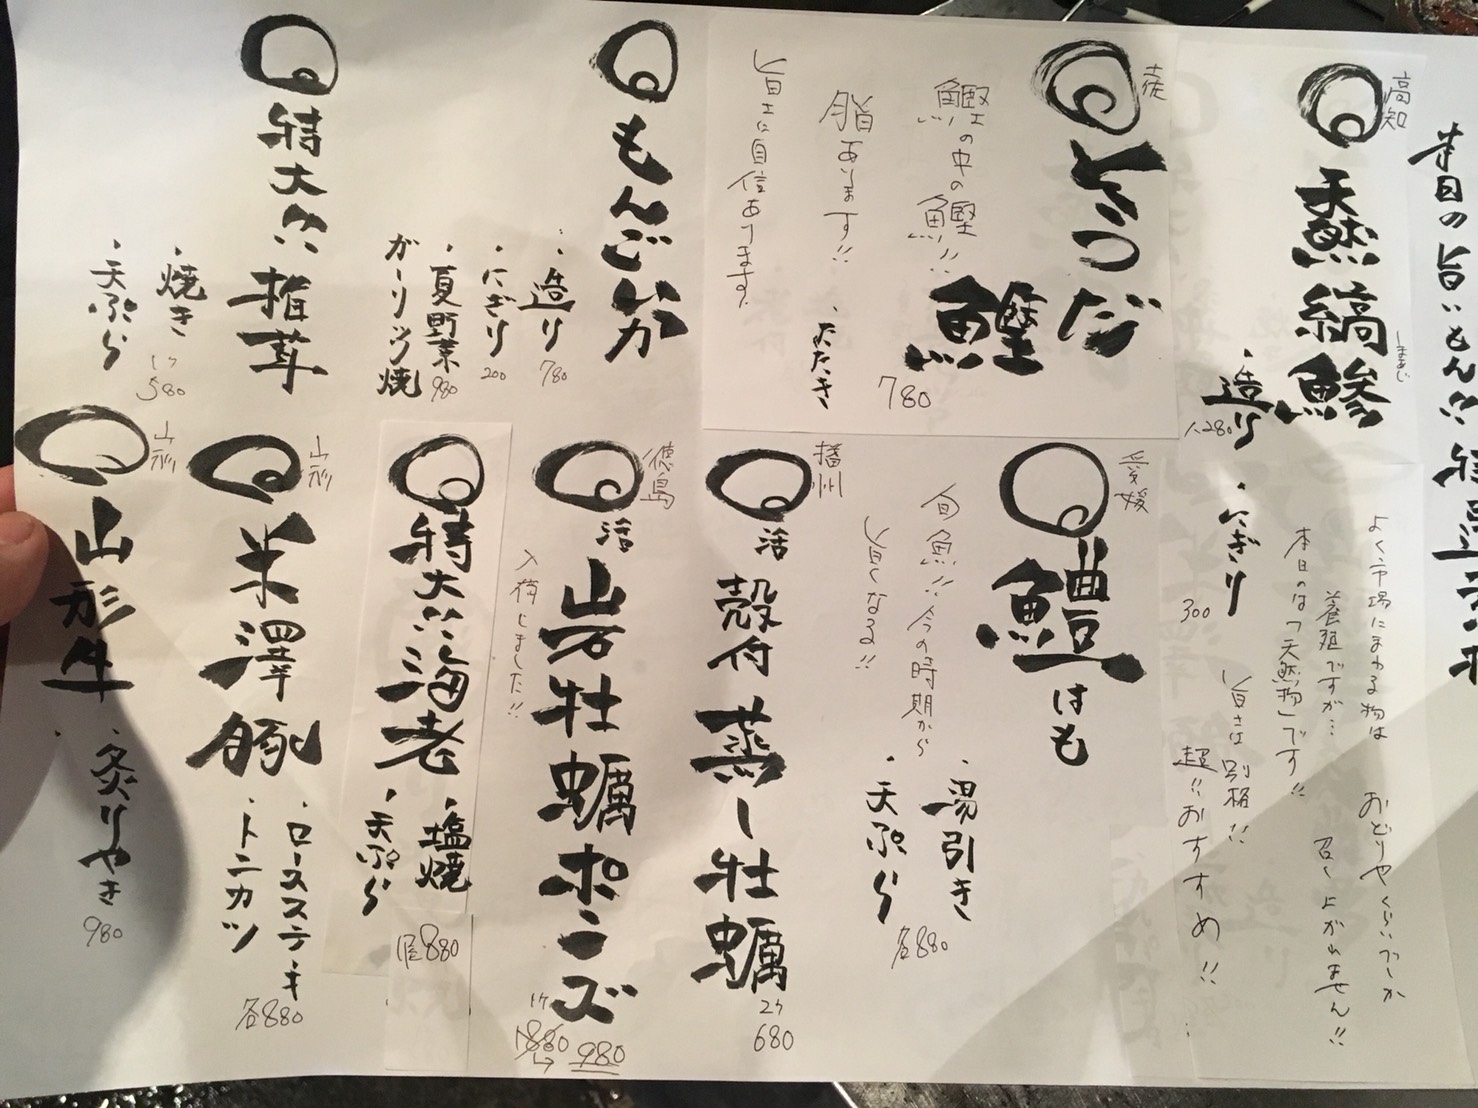 本日の旨いもん!!
高知
天然縞鰺
しまあじ
・造り
1,280
・にぎり
300
よく市場にまわる物は
養殖ですが…
本日のは「天然物」です!!
旨さは別格!!
超!!おすすめ!!
おどりやくらいでしか
召し上がれません!!
土佐
とつだ鰹
鰹の中の鰹!!
脂あります!!
旨さに自信あります。
・たたき
780
もんごいか
・造り
780
・にぎり
200
・夏野菜
ガーリック焼
980
特大!!椎茸
・焼き
・天ぷら
1ヶ
580
愛媛
鱧はも
旬魚!!今の時期から
旨くなる!!
・湯引き
・天ぷら
各880
播州
活
殻付蒸し牡蠣
2ヶ
680
徳島
活
岩牡蠣ポン酢
入荷しました!!
1ヶ
980
特大!!海老
・塩焼
・天ぷら
880
山形
米澤豚
・ロースステーキ
・トンカツ
各880
山形
山形牛
・炙りやき
980